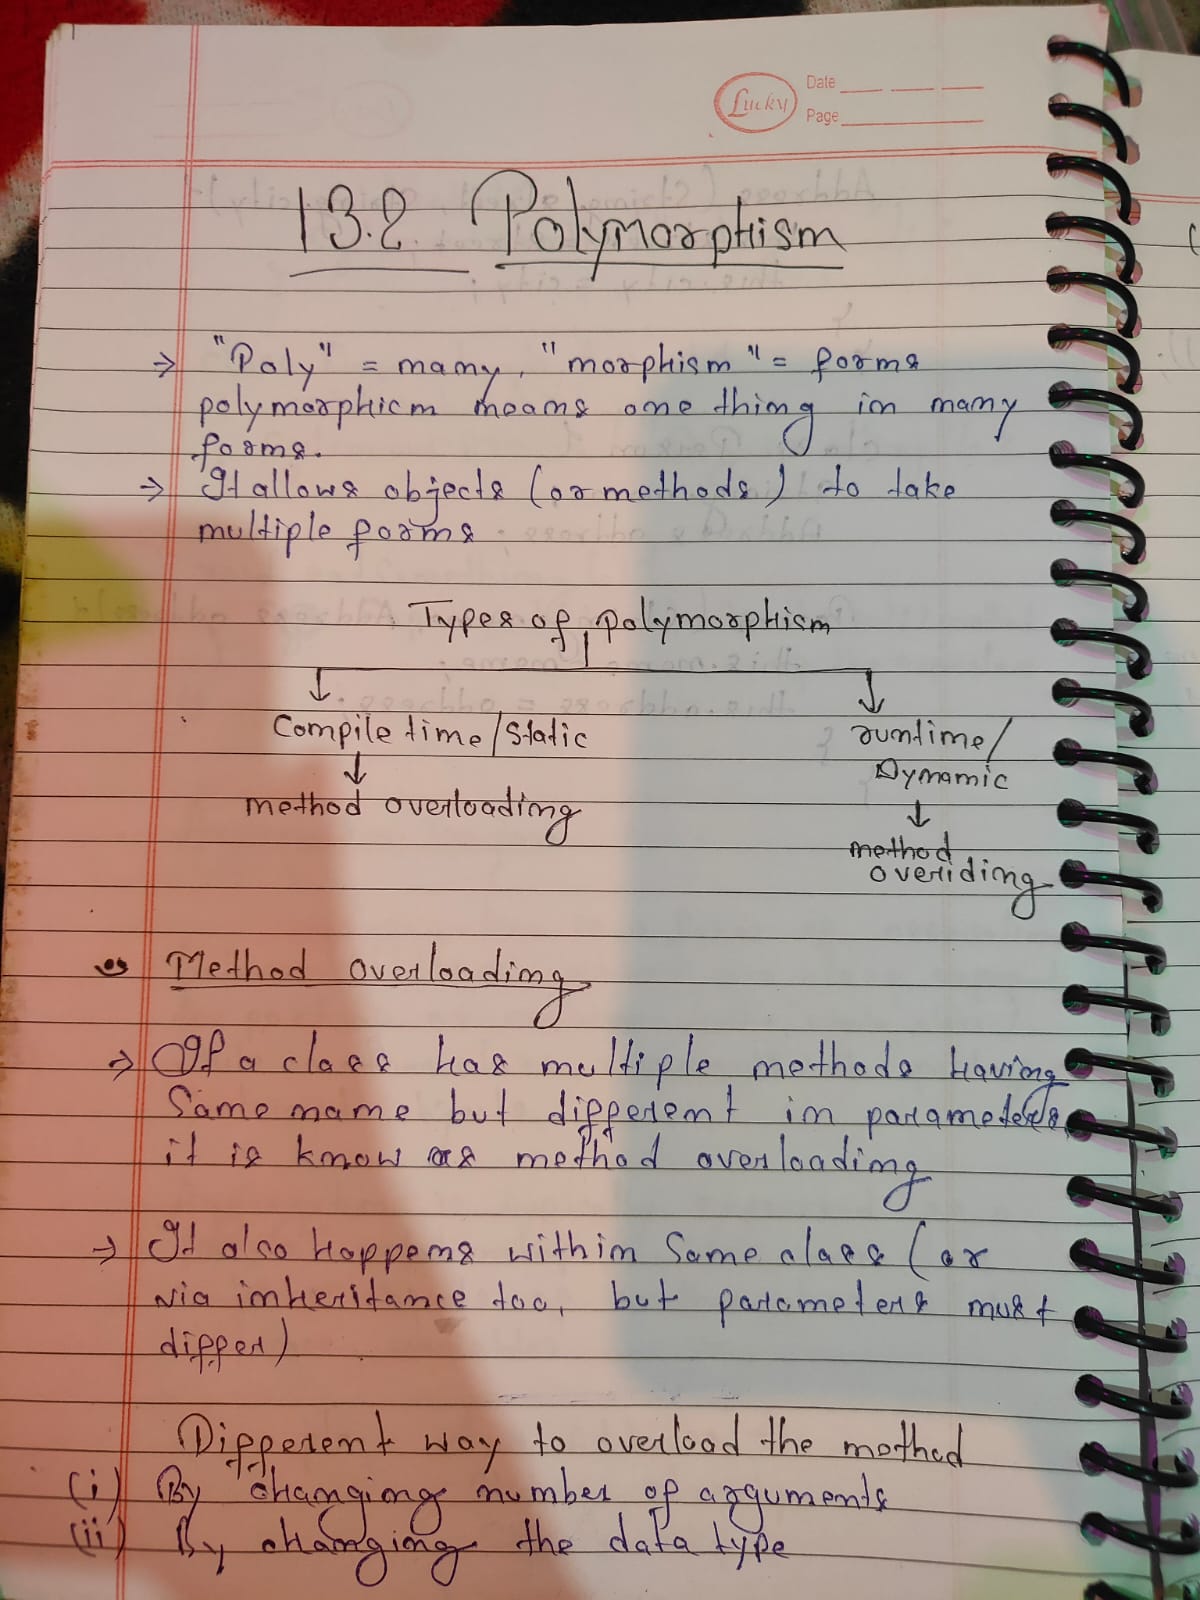 Lucky
Date
Page
13.2 Polymorphism
→ "Poly" = many, "morphism" = forms
polymorphicm means one thing in many
forms.
→ It allows objects (or methods) to take
multiple forms
Types of polymorphism
Compile time/Static
runtime/
Dynamic
method overloading
method
overiding
Method overloading
→ If a class has multiple methods having
Same name but different in parameters,
it is know as method overloading
→ It also happens within Same class (or
via inheritance too, but parameters must
differ)
Different way to overload the method
(i) By changing number of arguments
(ii) By changing the data type